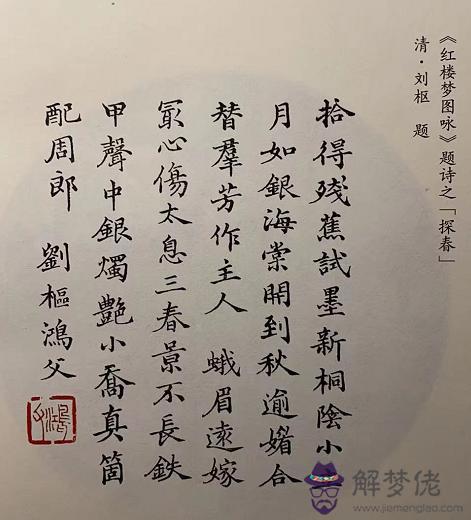 《红楼梦图咏》题诗之「探春」
清·刘枢 题
拾得残蕉試墨新桐陰小
月如銀海棠開到秋逾媚合
替羣芳作主人 蛾眉遠嫁
冣心傷太息三春景不長鉄
甲聲中銀燭艷小喬真箇
配周郎 劉樞鴻父
解梦佬
www.jiemenglao.com